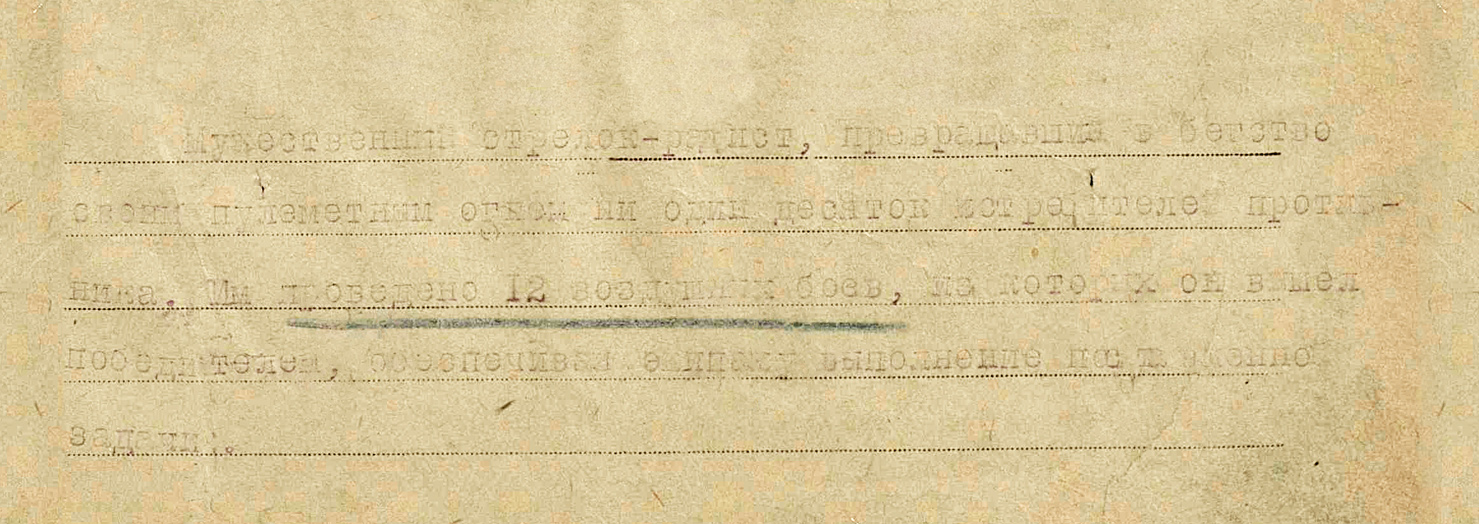 Мужественный стрелок-радист, превращавший в бегство
своим пулеметным огнем ни один десяток истребителей против-
ника. Им проведено 12 воздушных боев, из которых он вышел
победителем, обеспечивая экипажу выполнение поставленной
задачи.